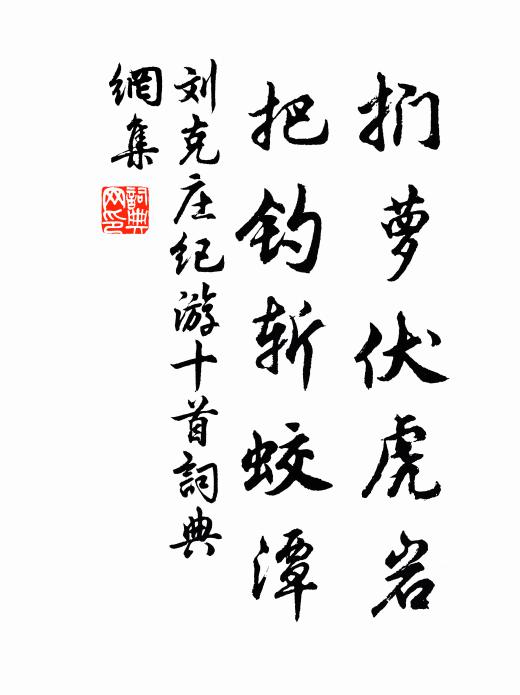 扪萝伏虎岩
把钓斩蛟潭
刘克庄纪游十首詞典
網集
詞典網印